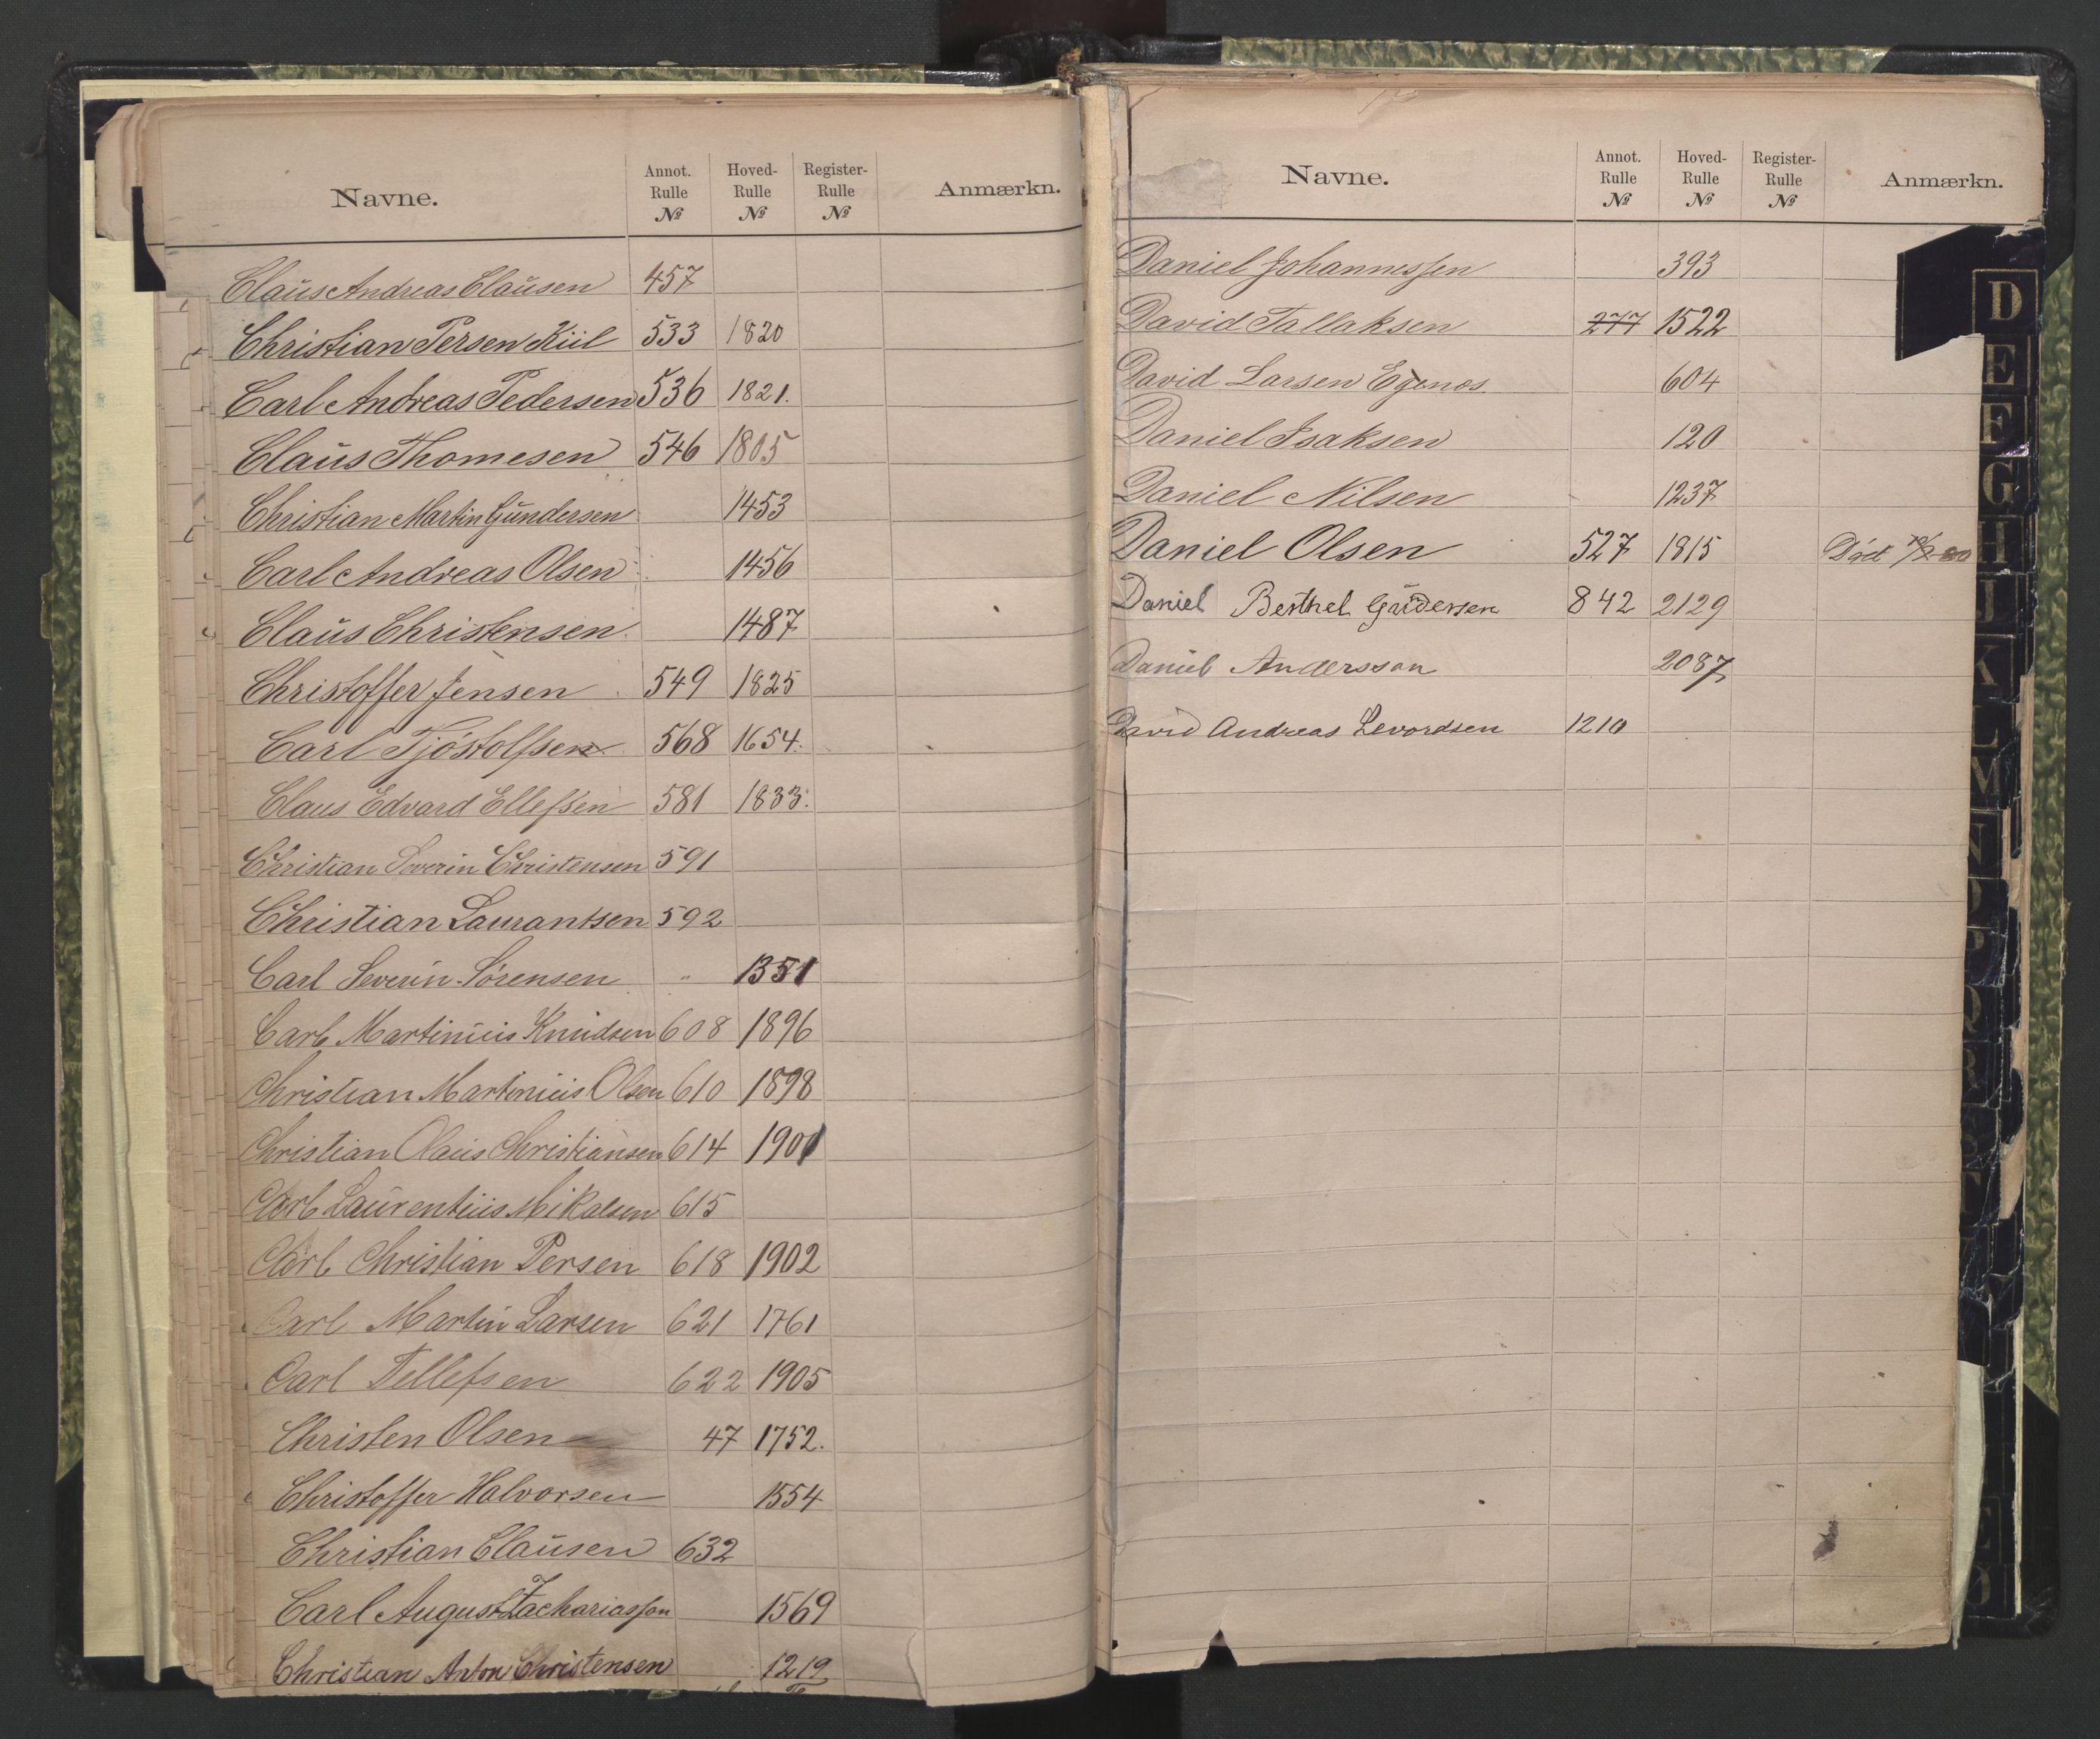 Navne. Annot. Rulle № Hoved-Rulle № Register-Rulle № Anmærkn.
Claus Andreas Clausen 457
Christian Persen Kiil 533 1820
Carl Andreas Pedersen 536 1821.
Claus Thomesen 546 1805
Christian Martin Gundersen 1453
Carl Andreas Olsen 1456
Claus Christensen 1487
Christoffer Jensen 549 1825
Carl Tjöstolfsen 568 1654.
Claus Edvard Ellefsen 581 1833.
Christian Severin Christensen 591
Christian Laurantsen 592
Carl Severin Sörensen " 1351
Carl Martinius Knudsen 608 1896
Christian Martinius Olsen 610 1898
Christian Olaus Christiansen 614 1901
Carl Laurentius Mikalsen 615
Carl Christian Persen 618 1902
Carl Martin Larsen 621 1761
Carl Tellefsen 622 1905
Christen Olsen 47 1752.
Christoffer Halvorsen 1554
Christian Clausen 632
Carl August Zachariasson 1569
Christian Anton Christensen 1219
Navne. Annot. Rulle № Hoved-Rulle № Register-Rulle № Anmærkn.
Daniel Johannessen 393
David Tallaksen 277 1522
David Larsen Egenes 604
Daniel Isaksen 120
Daniel Nilsen 1237
Daniel Olsen 527 1815 Död
Daniel Berthel Gundersen 842 2129
Daniel Andersson 2087
David Andreas Levordsen 1210
D
E
F
G
H
I
K
L
M
N
O
P
Q
R